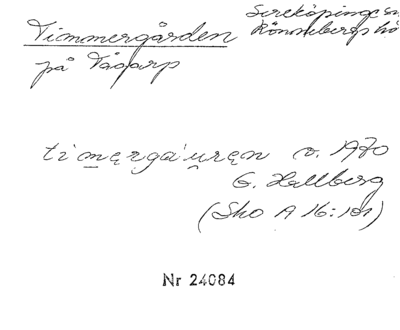 Timmergården
på Tågarp
Sireköpinge sn
Rönnebergs hd
ti'm̲ęrga'u̯ręn o. 1970
G. Hallberg
(Sko A 16:181)
Nr 24084